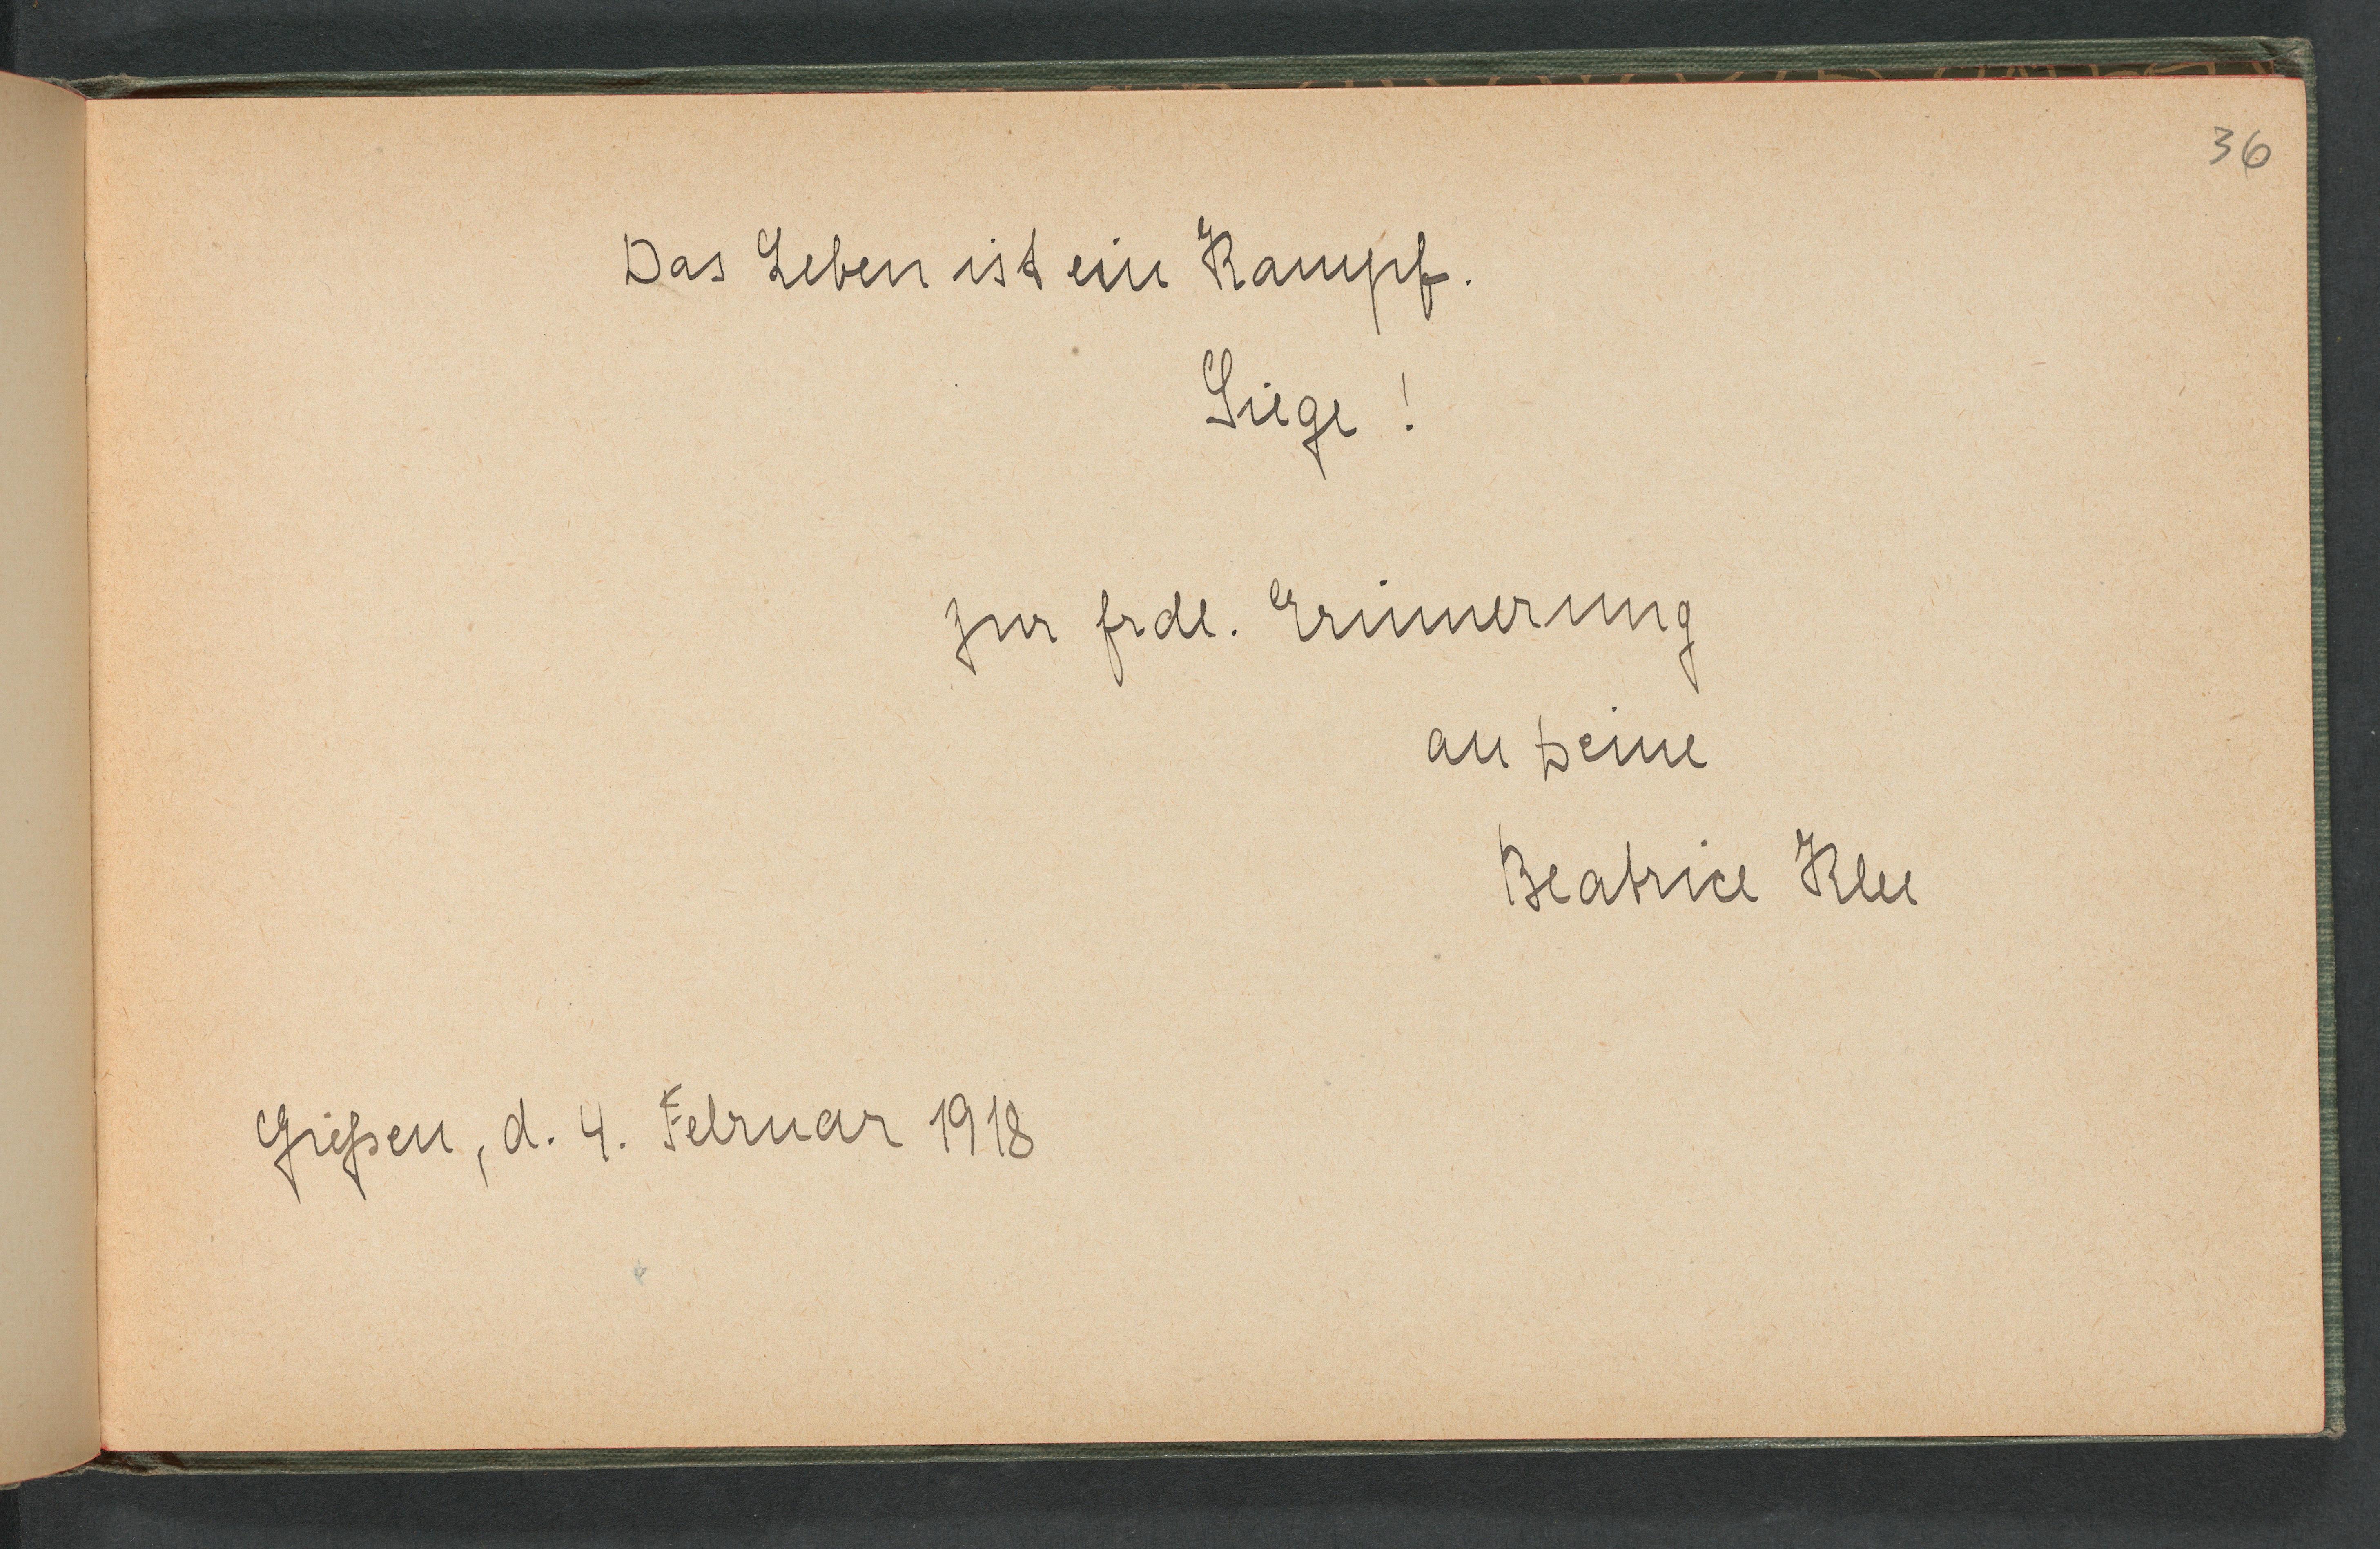 36
Das Leben ist ein Kampf.
Siege !
Zur frdl. Erinnerung
an Deine
Beatrice Klee
Gießen, d. 4. Februar 1918